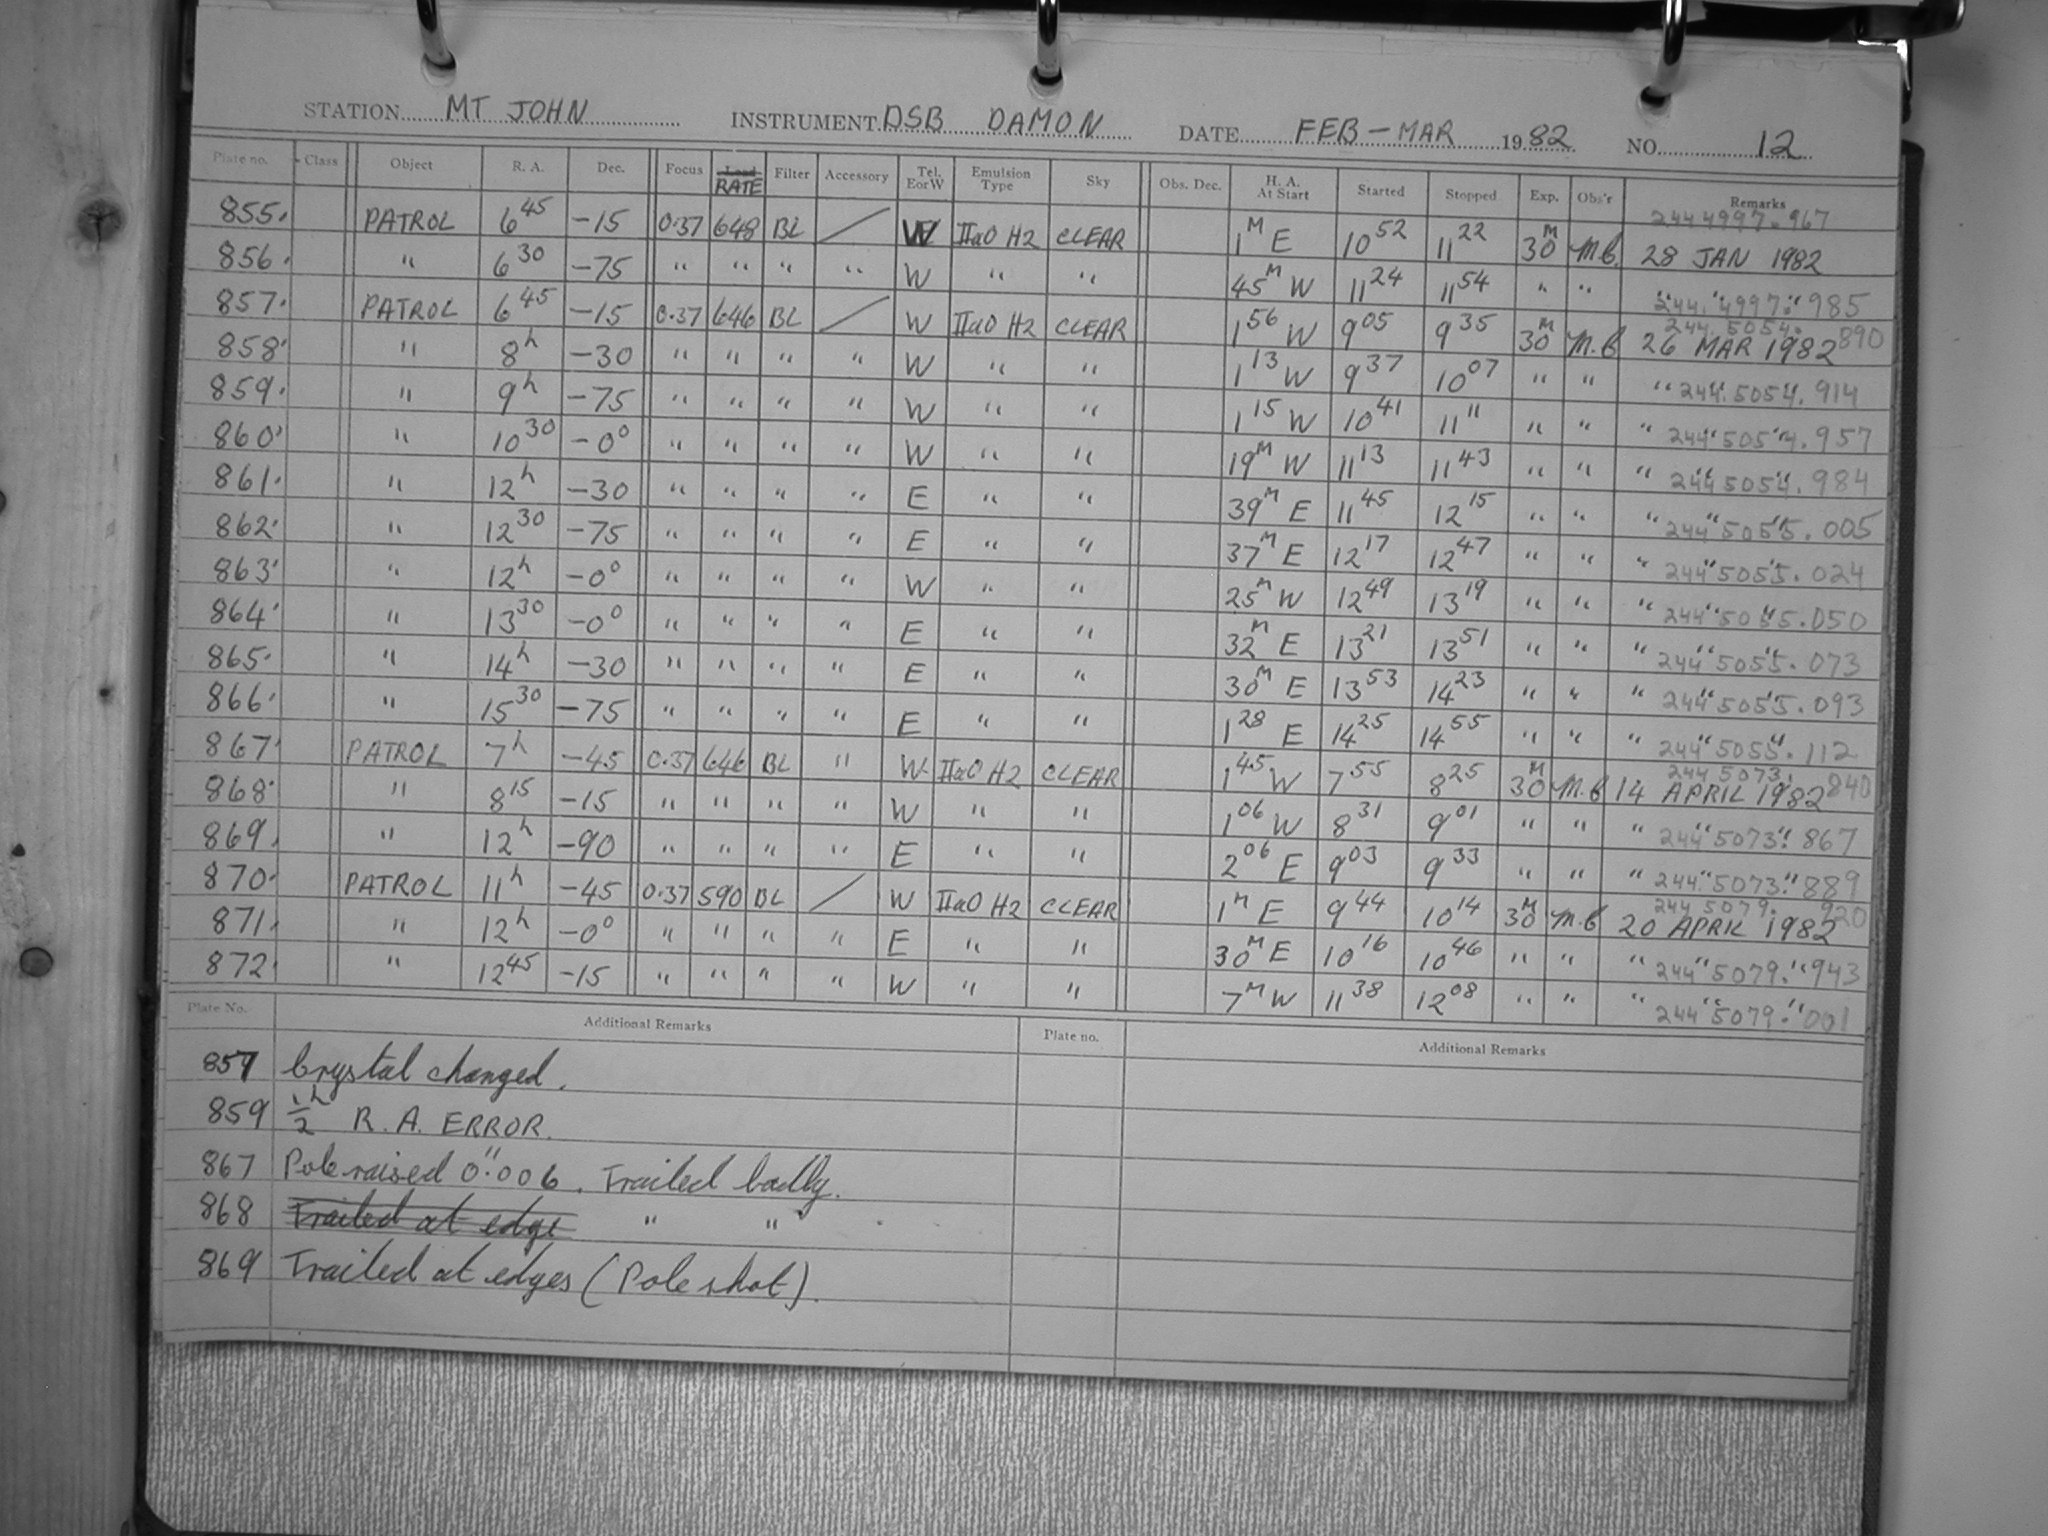 STATION MT JOHN INSTRUMENT DSB DAMON DATE FEB-MAR 1982 NO. 12
Plate no. Class Object R. A. Dec. Focus Load RATE Filter Accessory Tel. E or W Emulsion Type Sky Obs. Dec. H. A. At Start Started Stopped Exp. Obs'r Remarks
855. PATROL 6 45 -15 0.37 648 BL / W IIaO H2 CLEAR 1 M E 10 52 11 22 30 M M.B. 244 4997.967 28 JAN 1982
856. " 6 30 -75 " " " " W " " 45 M W 11 24 11 54 " " " " " 244 4997.985
857. PATROL 6 45 -15 0.37 646 BL / W IIaO H2 CLEAR 1 56 W 9 05 9 35 30 M M.B 244 5054.890 26 MAR 1982
858. " 8 h -30 " " " " W " " 1 13 W 9 37 10 07 " " " " 244 5054.914
859. " 9 h -75 " " " " W " " 1 15 W 10 41 11 11 " " " " " 244 5054.957
860. " 10 30 -0° " " " " W " " 19 M W 11 13 11 43 " " " " " 244 5054.984
861. " 12 h -30 " " " " E " " 39 M E 11 45 12 15 " " " " " 244 5055.005
862. " 12 30 -75 " " " " E " " 37 M E 12 17 12 47 " " " " " 244 5055.024
863. " 12 h -0° " " " " W " " 25 M W 12 49 13 19 " " " " " 244 5055.050
864. " 13 30 -0° " " " " E " " 32 M E 13 21 13 51 " " " " " 244 5055.073
865. " 14 h -30 " " " " E " " 30 M E 13 53 14 23 " " " " " 244 5055.093
866. " 15 30 -75 " " " " E " " 1 28 E 14 25 14 55 " " " " " 244 5055.112
867. PATROL 7 h -45 0.37 646 BL " W IIaO H2 CLEAR 1 45 W 7 55 8 25 30 M M.B 244 5073.840 14 APRIL 1982
868. " 8 15 -15 " " " " W " " 1 06 W 8 31 9 01 " " " " " 244 5073.867
869. " 12 h -90 " " " " E " " 2 06 E 9 03 9 33 " " " " " 244 5073.889
870. PATROL 11 h -45 0.37 590 BL / W IIaO H2 CLEAR 1 M E 9 44 10 14 30 M M.B 244 5079.920 20 APRIL 1982
871. " 12 h -0° " " " " E " " 30 M E 10 16 10 46 " " " " " 244 5079.943
872. " 12 45 -15 " " " " W " " 7 M W 11 38 12 08 " " " " " 244 5079.001
Plate No. Additional Remarks Plate no. Additional Remarks
857 Crystal changed.
859 ½ h R. A. ERROR.
867 Pole raised 0".006. Trailed badly.
868 Trailed at edge " "
869 Trailed at edges (Pole shot).